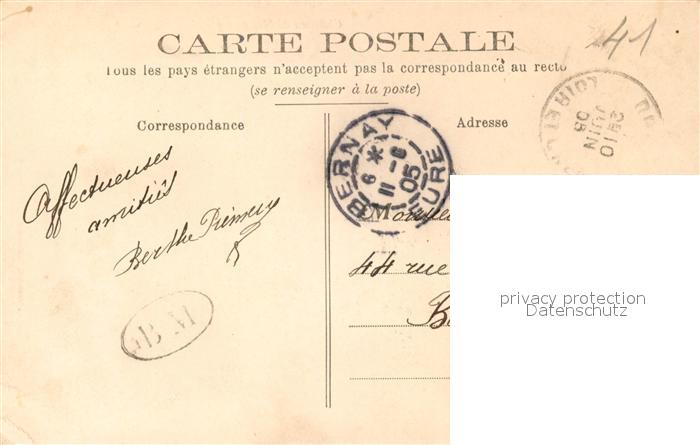 41
CARTE POSTALE
Tous les pays étrangers n'acceptent pas la correspondance au recto
(se renseigner à la poste)
Correspondance
Adresse
BERNAY
6 * 6
11 - 05
EURE
LOIRET
2E 10
JUIN
05
Affectueuses
amitiés
Berthe
BM
44 rue
privacy protection
Datenschutz